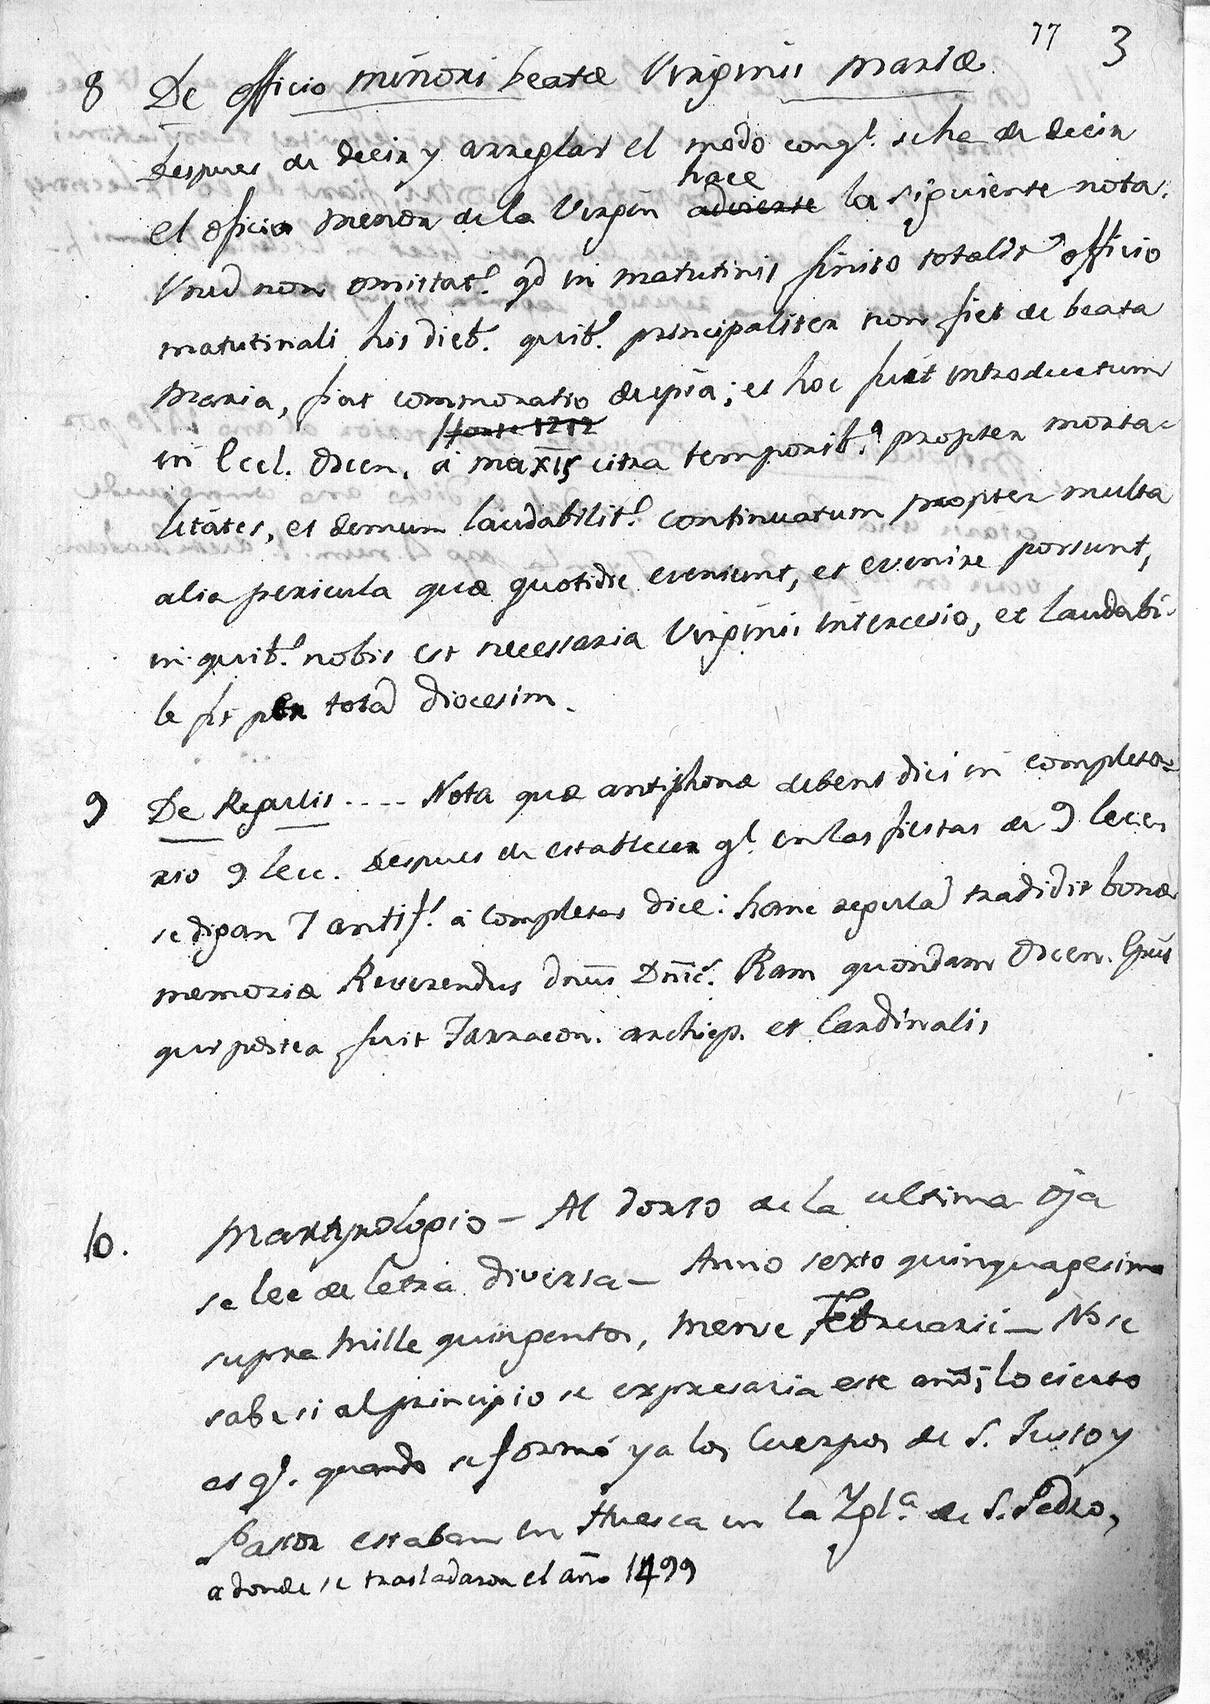 77 3
8 De officio minori beatæ Virginis Mariæ
despues de decir y arreglar el modo conq.^e se ha de decir
hace
el oficio menor de la Virgin advierte la siguiente nota.
Unud non omittat.^r qd in matutinis finito totalit.^r officio
matutinali his dieb.^s quib.^s principaliter non fiet de beata
Maria, fiat commoratio de ipsa; et hoc fuit introductum
forte 1212
in Eccl. Oscen. á maxis citra temporib.^s propter morta-
litates, et demum laudabilit.^r continuatum propter multa
alia pericula quæ quotidie eveniunt, et evenire possunt,
in quib.^s nobis est necessaria Virginis intercesio, et laudabi-
le sit per totã diocesim.
9 De Regulis .... Nota quæ antiphonæ debent dici in completo-
rio 9 lecc. despues de establecer q.^e en las fiestas de 9 lecc.
se digan 7 antif.^s á completas dice: hanc regulã tradidit bonæ
memoriæ Reverendus dnus Dnic.^s Ram quondam Oscen. Epus
qui postea fuit Tarracon. archiep. et Cardinalis
10. Martyrologio – Al dorso de la ultima oja
se lee de letra diversa – Anno sexto quinquagesimo
supra mille quingentos, mense Februarii – No se
sabe si al principio se expresaria este año; lo cierto
es q.^e quando se formó ya los Cuerpos de S. Justo y
Pastor estaban en Huesca en la Ygl.^a de S. Pedro,
a donde se trasladaron el año 1499